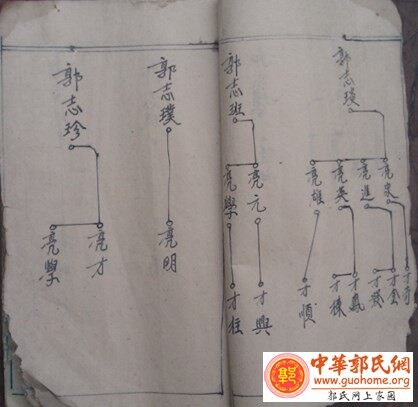 郭志瑛
亮進
亮英
亮雄
才金
才鳳
才棟
才順
郭志班
亮元
亮學
才興
才柱
郭志璞
亮明
郭志珍
亮才
亮學
郭
中華郭氏網
www.guohome.org
郭氏网上家园